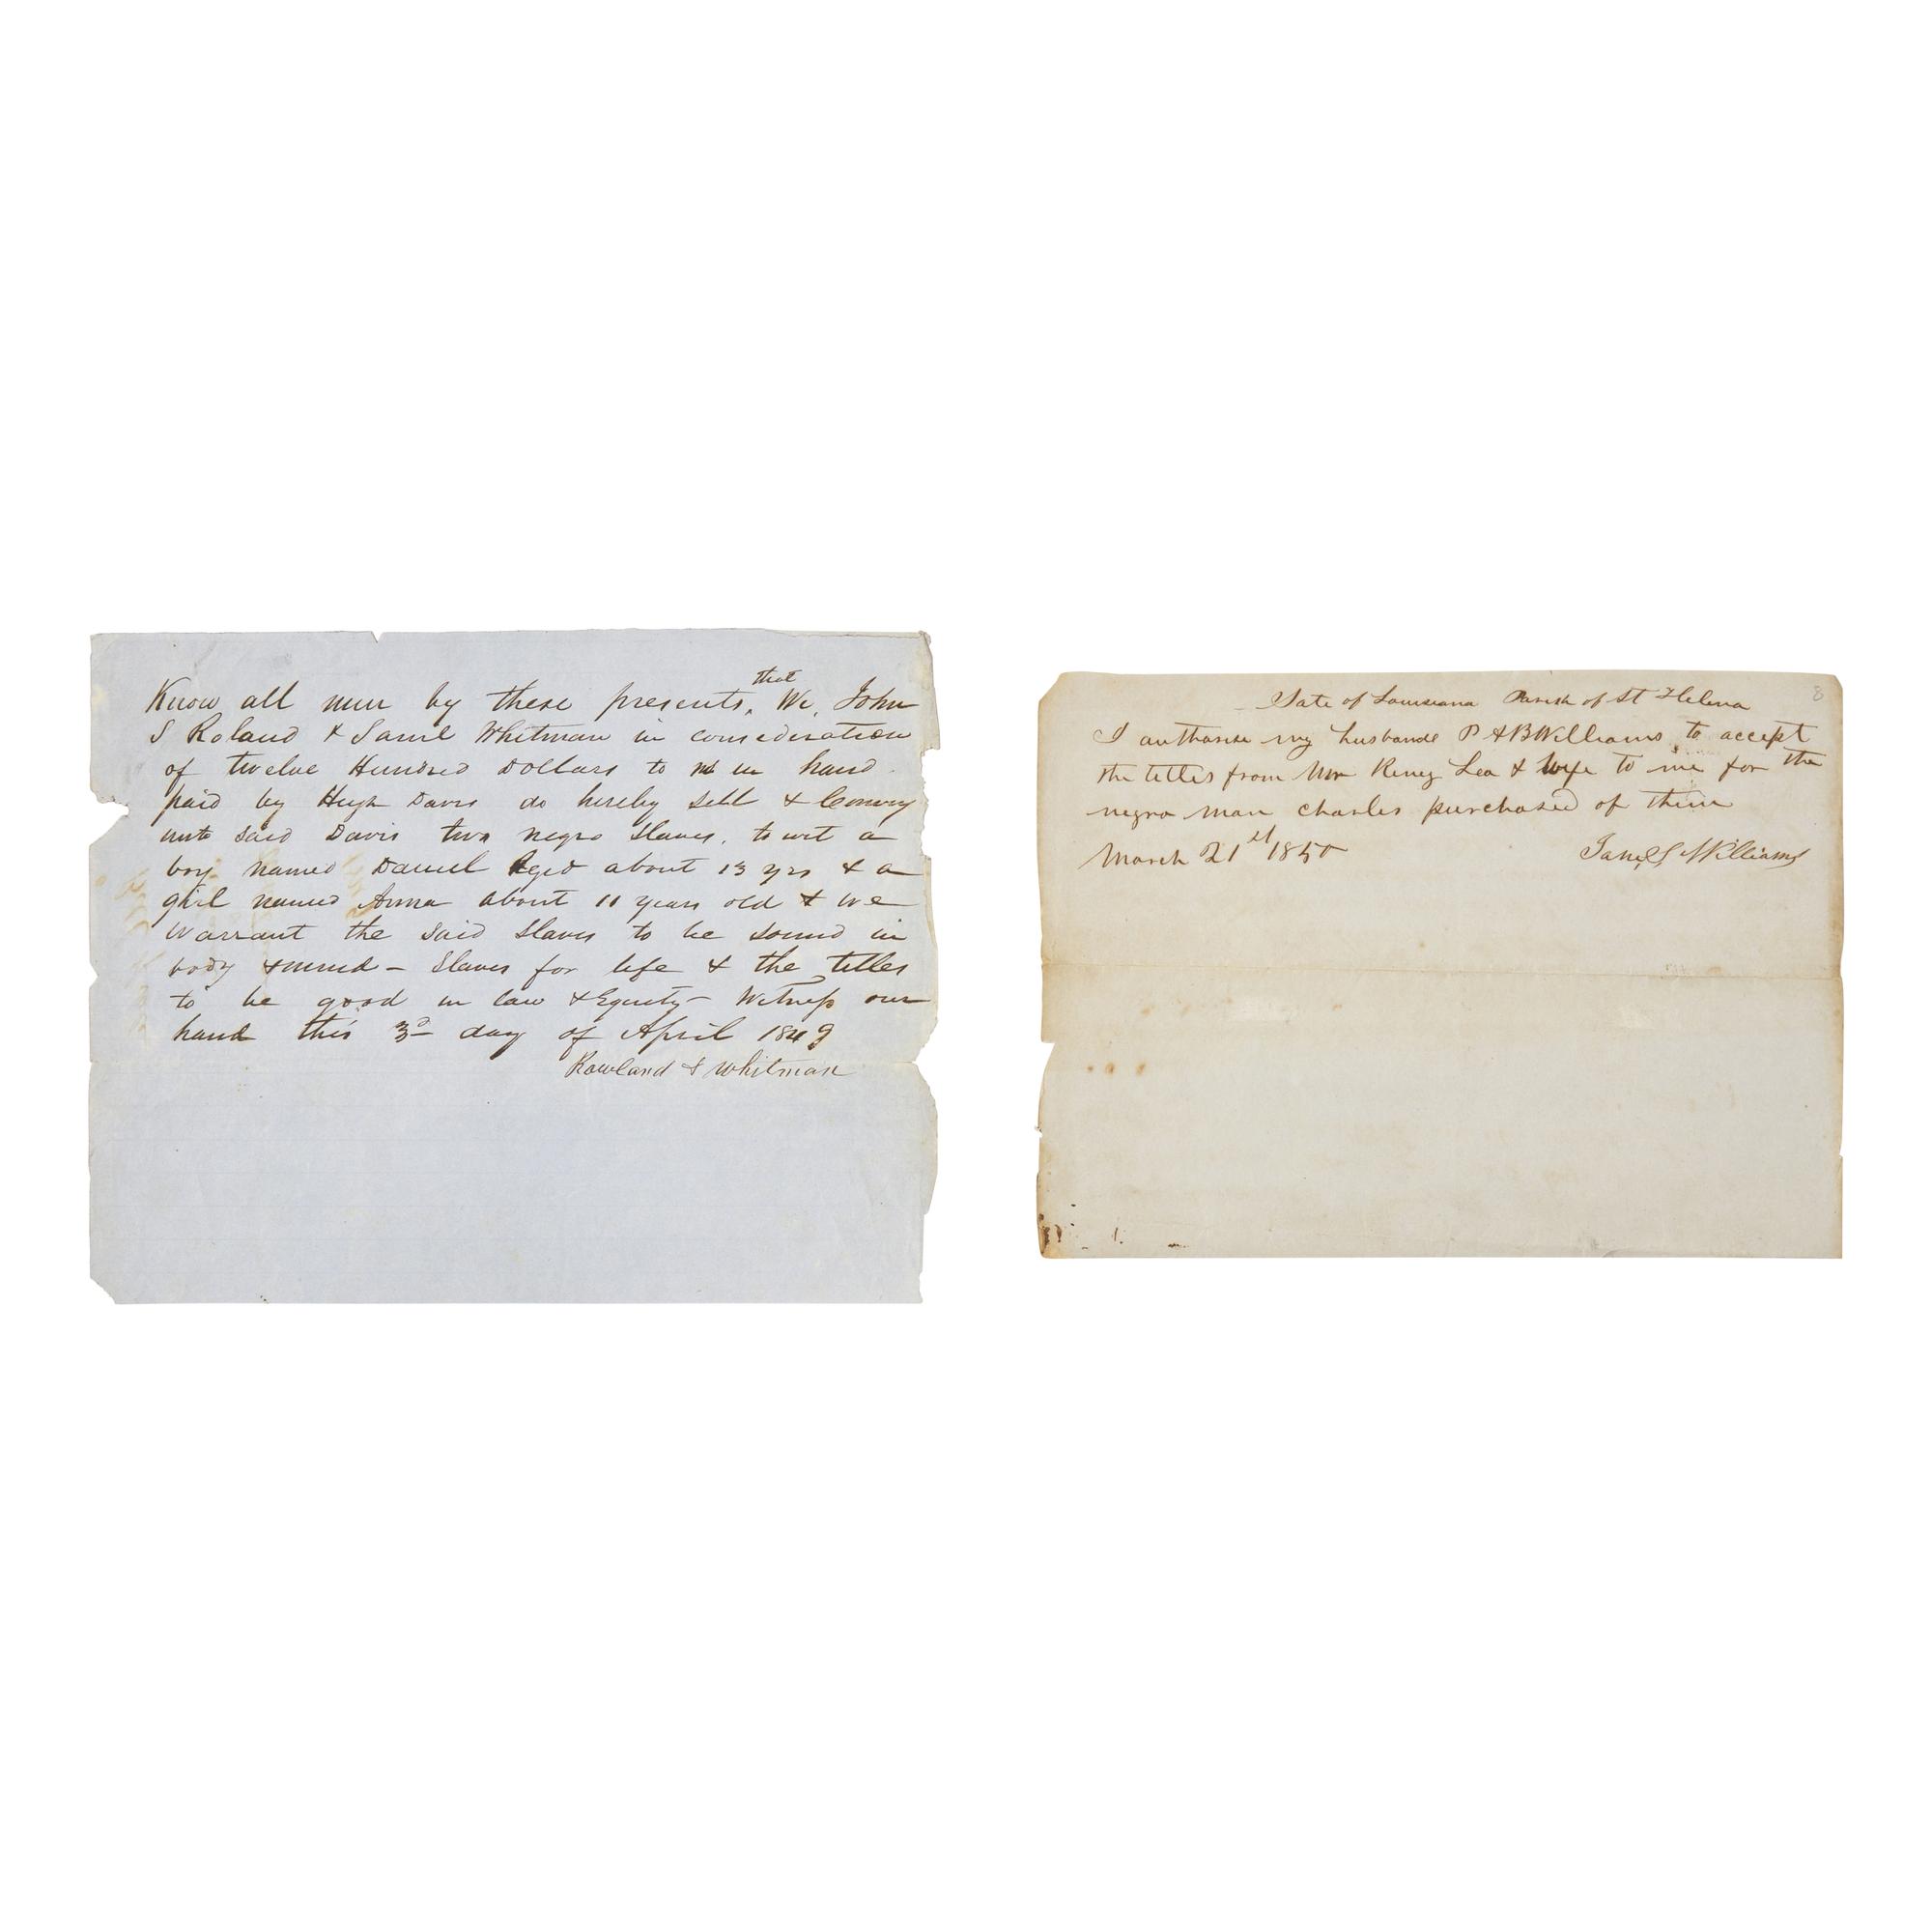 Know all men by these presents, that We, John
S Roland & Saml Whitman in consideration
of twelve Hundred Dollars to us in hand
paid by Hugh Davis do hereby sell & Convey
unto said Davis two negro slaves, to wit a
boy named Daniel Aged about 13 yrs & a
girl named Anna about 11 years old & we
warrant the said slaves to be sound in
body & mind - slaves for life & the titles
to be good in law & Equity - Witness our
hand this 3d day of April 1849
Rowland & Whitman
State of Louisiana Parish of St Helena
8
I autharise my husbande P A B Williams to accept
the titles from Mr Lea & wife to me for the
negro man charles purchased of them
March 21st 1850
Williams